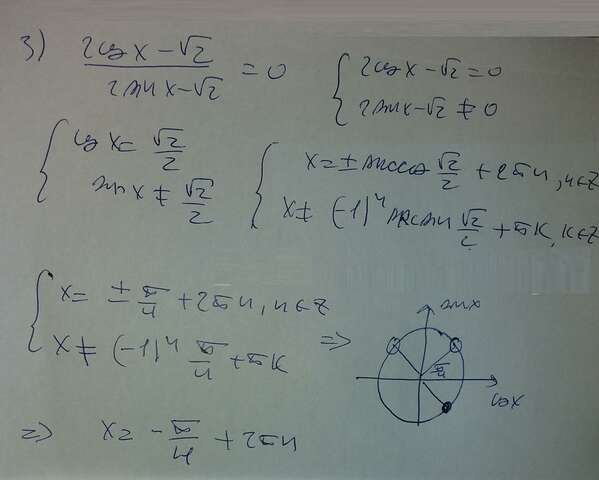 3) (2cos x - √2)/(2sin x - √2) = 0 { 2cos x - √2 = 0
2sin x - √2 ≠ 0
{ cos x = √2/2
sin x ≠ √2/2
{ x = ± arccos √2/2 + 2πn, n∈Z
x ≠ (-1)ⁿ arcsin √2/2 + πk, k∈Z
{ x = ± π/4 + 2πn, n∈Z
x ≠ (-1)ⁿ π/4 + πk =>
sin x
π/4
cos x
=> x = - π/4 + 2πn